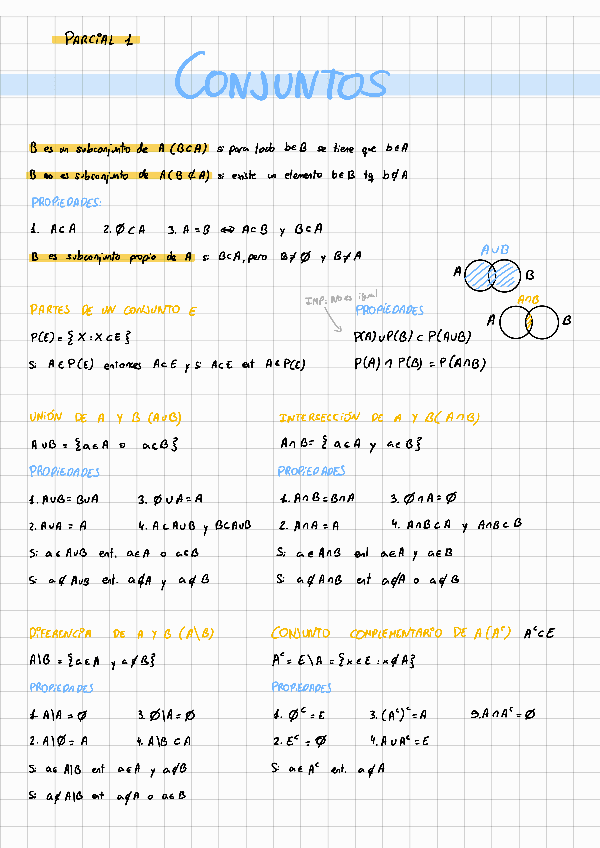 PARCIAL 1
CONJUNTOS
B es un subconjunto de A (B⊂A) si para todo b∈B se tiene que b∈A
B no es subconjunto de A (B⊄A) si existe un elemento b∈B tq b∉A
PROPIEDADES:
1. A⊂A 2. ∅⊂A 3. A=B ⇔ A⊂B y B⊂A
B es subconjunto propio de A si B⊂A, pero B≠∅ y B≠A
A∪B
A B
A∩B
A B
IMP: No es igual
PARTES DE UN CONJUNTO E
P(E)={X:X⊂E}
Si A∈P(E) entonces A⊂E y si A⊂E ent A∈P(E)
PROPIEDADES
P(A)∪P(B)⊂P(A∪B)
P(A)∩P(B)=P(A∩B)
UNIÓN DE A Y B (A∪B)
A∪B={a∈A o a∈B}
PROPIEDADES
1. A∪B=B∪A 3. ∅∪A=A
2. A∪A=A 4. A⊂A∪B y B⊂A∪B
Si a∈A∪B ent. a∈A o a∈B
Si a∉A∪B ent. a∉A y a∉B
INTERSECCIÓN DE A Y B (A∩B)
A∩B={a∈A y a∈B}
PROPIEDADES
1. A∩B=B∩A 3. ∅∩A=∅
2. A∩A=A 4. A∩B⊂A y A∩B⊂B
Si a∈A∩B ent a∈A y a∈B
Si a∉A∩B ent a∉A o a∉B
DIFERENCIA DE A Y B (A\B)
A\B={a∈A y a∉B}
PROPIEDADES
1. A\A=∅ 3. ∅\A=∅
2. A\∅=A 4. A\B⊂A
Si a∈A\B ent a∈A y a∉B
Si a∉A\B ent a∉A o a∈B
CONJUNTO COMPLEMENTARIO DE A (Aᶜ) Aᶜ⊂E
Aᶜ=E\A={x∈E:x∉A}
PROPIEDADES
1. ∅ᶜ=E 3. (Aᶜ)ᶜ=A 5. A∩Aᶜ=∅
2. Eᶜ=∅ 4. A∪Aᶜ=E
Si a∈Aᶜ ent. a∉A